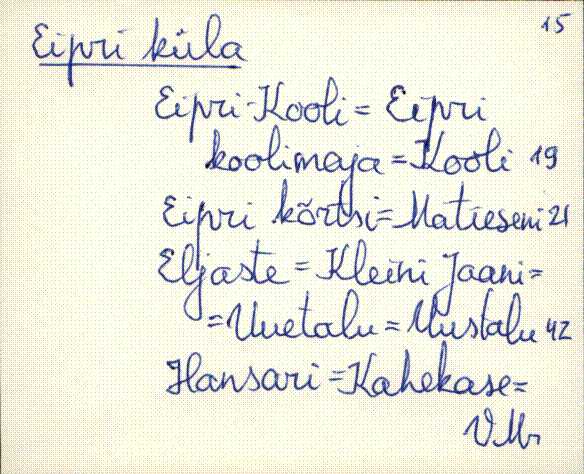 15
Eipri küla
Eipri-Kooli = Eipri
koolimaja = Kooli 19
Eipri kõrtsi = Matieseni 21
Eljaste = Kleini Jaani =
= Uuetalu = Uustalu 42
Hansari = Kahekase =